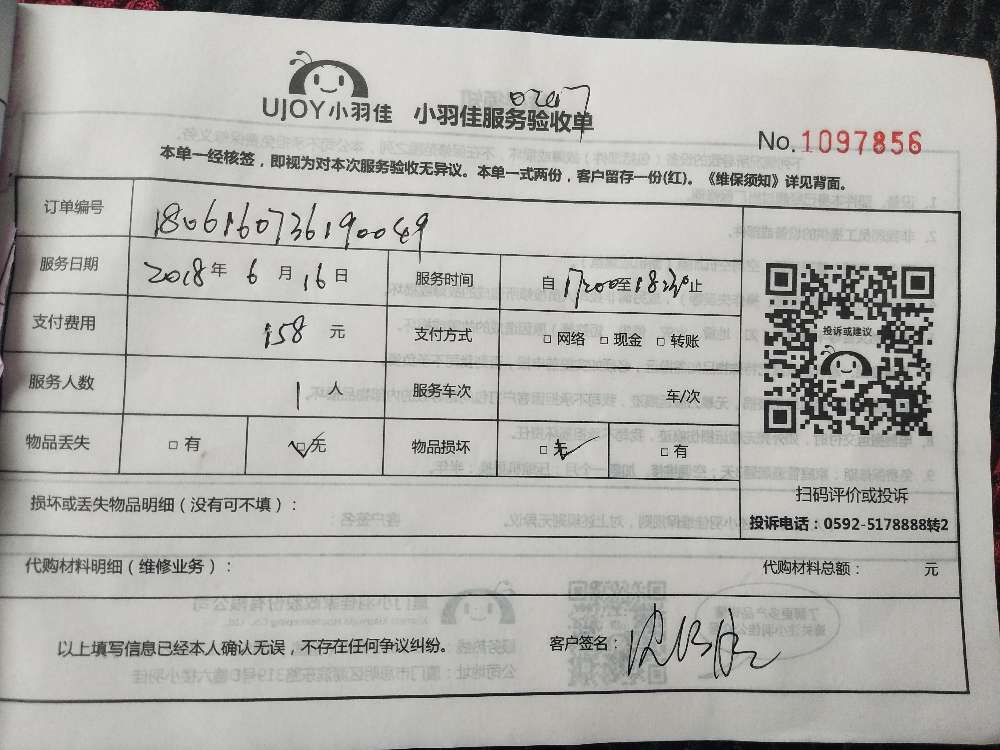 UJOY小羽佳 小羽佳服务验收单
No.1097856
本单一经核签，即视为对本次服务验收无异议。本单一式两份，客户留存一份(红)。《维保须知》详见背面。
订单编号 18061607361900049
服务日期 2018年 6 月 16 日 服务时间 自 17:00 至 18:30 止
支付费用 158 元 支付方式 □ 网络 □ 现金 □ 转账
服务人数 1 人 服务车次 车/次
投诉或建议
物品丢失 □ 有 □无 物品损坏 □ 无 □ 有
扫码评价或投诉
损坏或丢失物品明细（没有可不填）：
投诉电话：0592-5178888转2
代购材料明细（维修业务）： 代购材料总额： 元
以上填写信息已经本人确认无误，不存在任何争议纠纷。 客户签名：